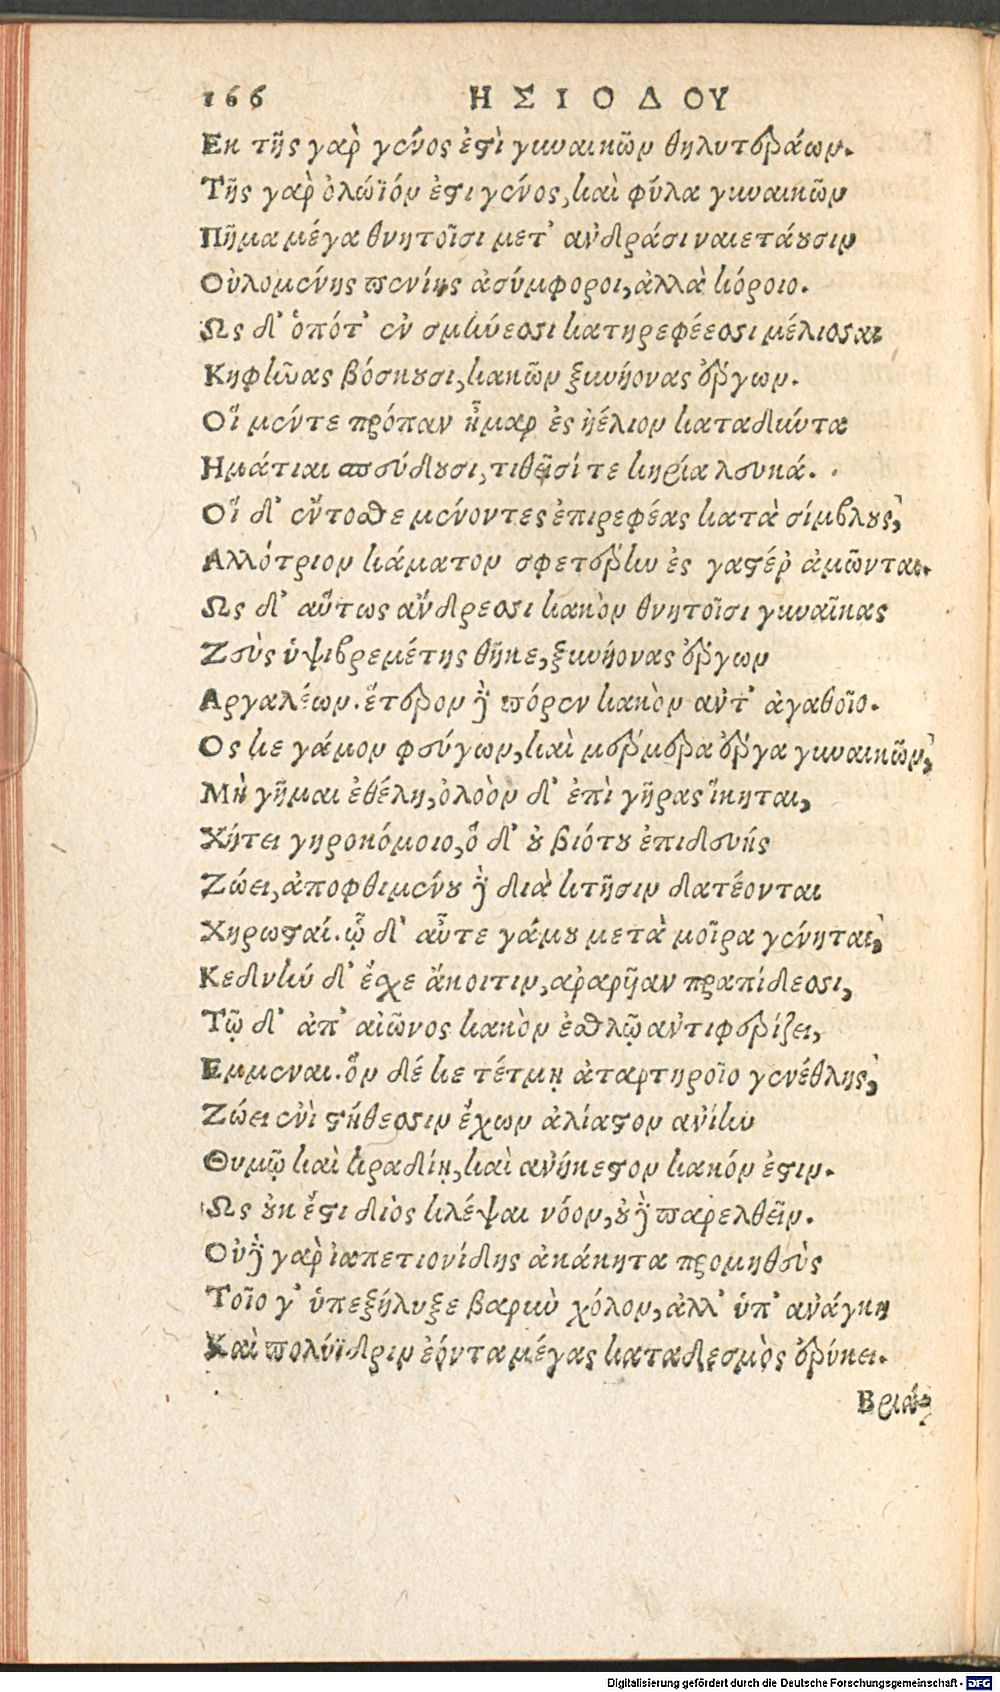 166 ΗΣΙΟΔΟΥ
Εκ τῆς γὰρ γένος ἐστὶ γυναικῶν θηλυτεράων.
Τῆς γὰρ ὀλώϊόν ἐστι γένος, καὶ φύλα γυναικῶν
Πῆμα μέγα θνητοῖσι μετ᾽ ἀνδράσι ναιετάουσιν
Οὐλομένης πενίης ἀσύμφοροι, ἀλλὰ κόροιο.
Ως δ᾽ ὁπότ᾽ ἐν σμήνεσσι κατηρεφέεσσι μέλισσαι
Κηφῆνας βόσκουσι, κακῶν ξυνήονας ἔργων.
Οἵ μέν τε πρόπαν ἦμαρ ἐς ἠέλιον καταδύντα
Ημάτιαι σπεύδουσι, τιθεῖσί τε κηρία λευκά.
Οἵ δ᾽ ἔντοσθε μένοντες ἐπιρεφέας κατὰ σίμβλους,
Αλλότριον κάματον σφετέρην ἐς γαστέρ᾽ ἀμῶνται.
Ως δ᾽ αὔτως ἄνδρεσσι κακὸν θνητοῖσι γυναῖκας
Ζεὺς ὑψιβρεμέτης θῆκε, ξυνήονας ἔργων
Αργαλέων. ἕτερον δὲ πόρεν κακὸν ἀντ᾽ ἀγαθοῖο.
Ος κε γάμον φεύγων, καὶ μέρμερα ἔργα γυναικῶν,
Μὴ γῆμαι ἐθέλῃ, ὀλοὸν δ᾽ ἐπὶ γῆρας ἵκηται,
Χήτει γηροκόμοιο, ὅ δ᾽ οὐ βιότου ἐπιδευής
Ζώει, ἀποφθιμένου δὲ διὰ κτῆσιν δατέονται
Χηρωσταί. ᾧ δ᾽ αὖτε γάμου μετὰ μοῖρα γένηται,
Κεδνὴν δ᾽ ἔσχε ἄκοιτιν, ἀραρῆαν πραπίδεσσι,
Τῷ δ᾽ ἀπ᾽ αἰῶνος κακὸν ἐσθλῷ ἀντιφερίζει,
Εμμεναι. ὃν δέ κε τέτμῃ ἀταρτηροῖο γενέθλης,
Ζώει ἐνὶ στήθεσσιν ἔχων ἀλίαστον ἀνίην
Θυμῷ καὶ κραδίῃ, καὶ ἀνήκεστον κακόν ἐστιν.
Ως οὐκ ἔστι διὸς κλέψαι νόον, οὐδὲ παρελθεῖν.
Οὐδὲ γὰρ ἰαπετιονίδης ἀκάκητα προμηθεὺς
Τοῖο γ᾽ ὑπεξήλυξε βαρὺν χόλον, ἀλλ᾽ ὑπ᾽ ἀνάγκη
Καὶ πολύϊδριν ἐόντα μέγας κατὰ δεσμὸς ἐρύκει.
Βριά-
Digitalisierung gefördert durch die Deutsche Forschungsgemeinschaft - DFG